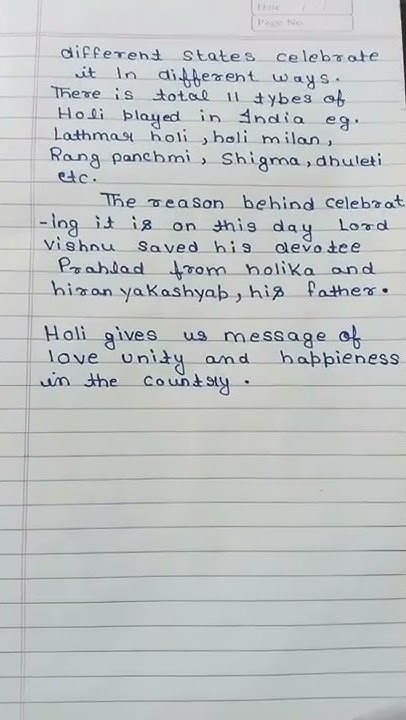 Date / /
Page No.
different states celebrate
it In different ways.
There is total 11 tybes of
Holi played in India eg.
Lathmar holi, holi milan,
Rang panchmi, Shigma, dhuleti
etc.
The reason behind celebrat
-ing it is on this day Lord
Vishnu saved his devotee
Prahlad from holika and
hiranyakashyab, his father.
Holi gives us message of
love unity and happieness
in the country.